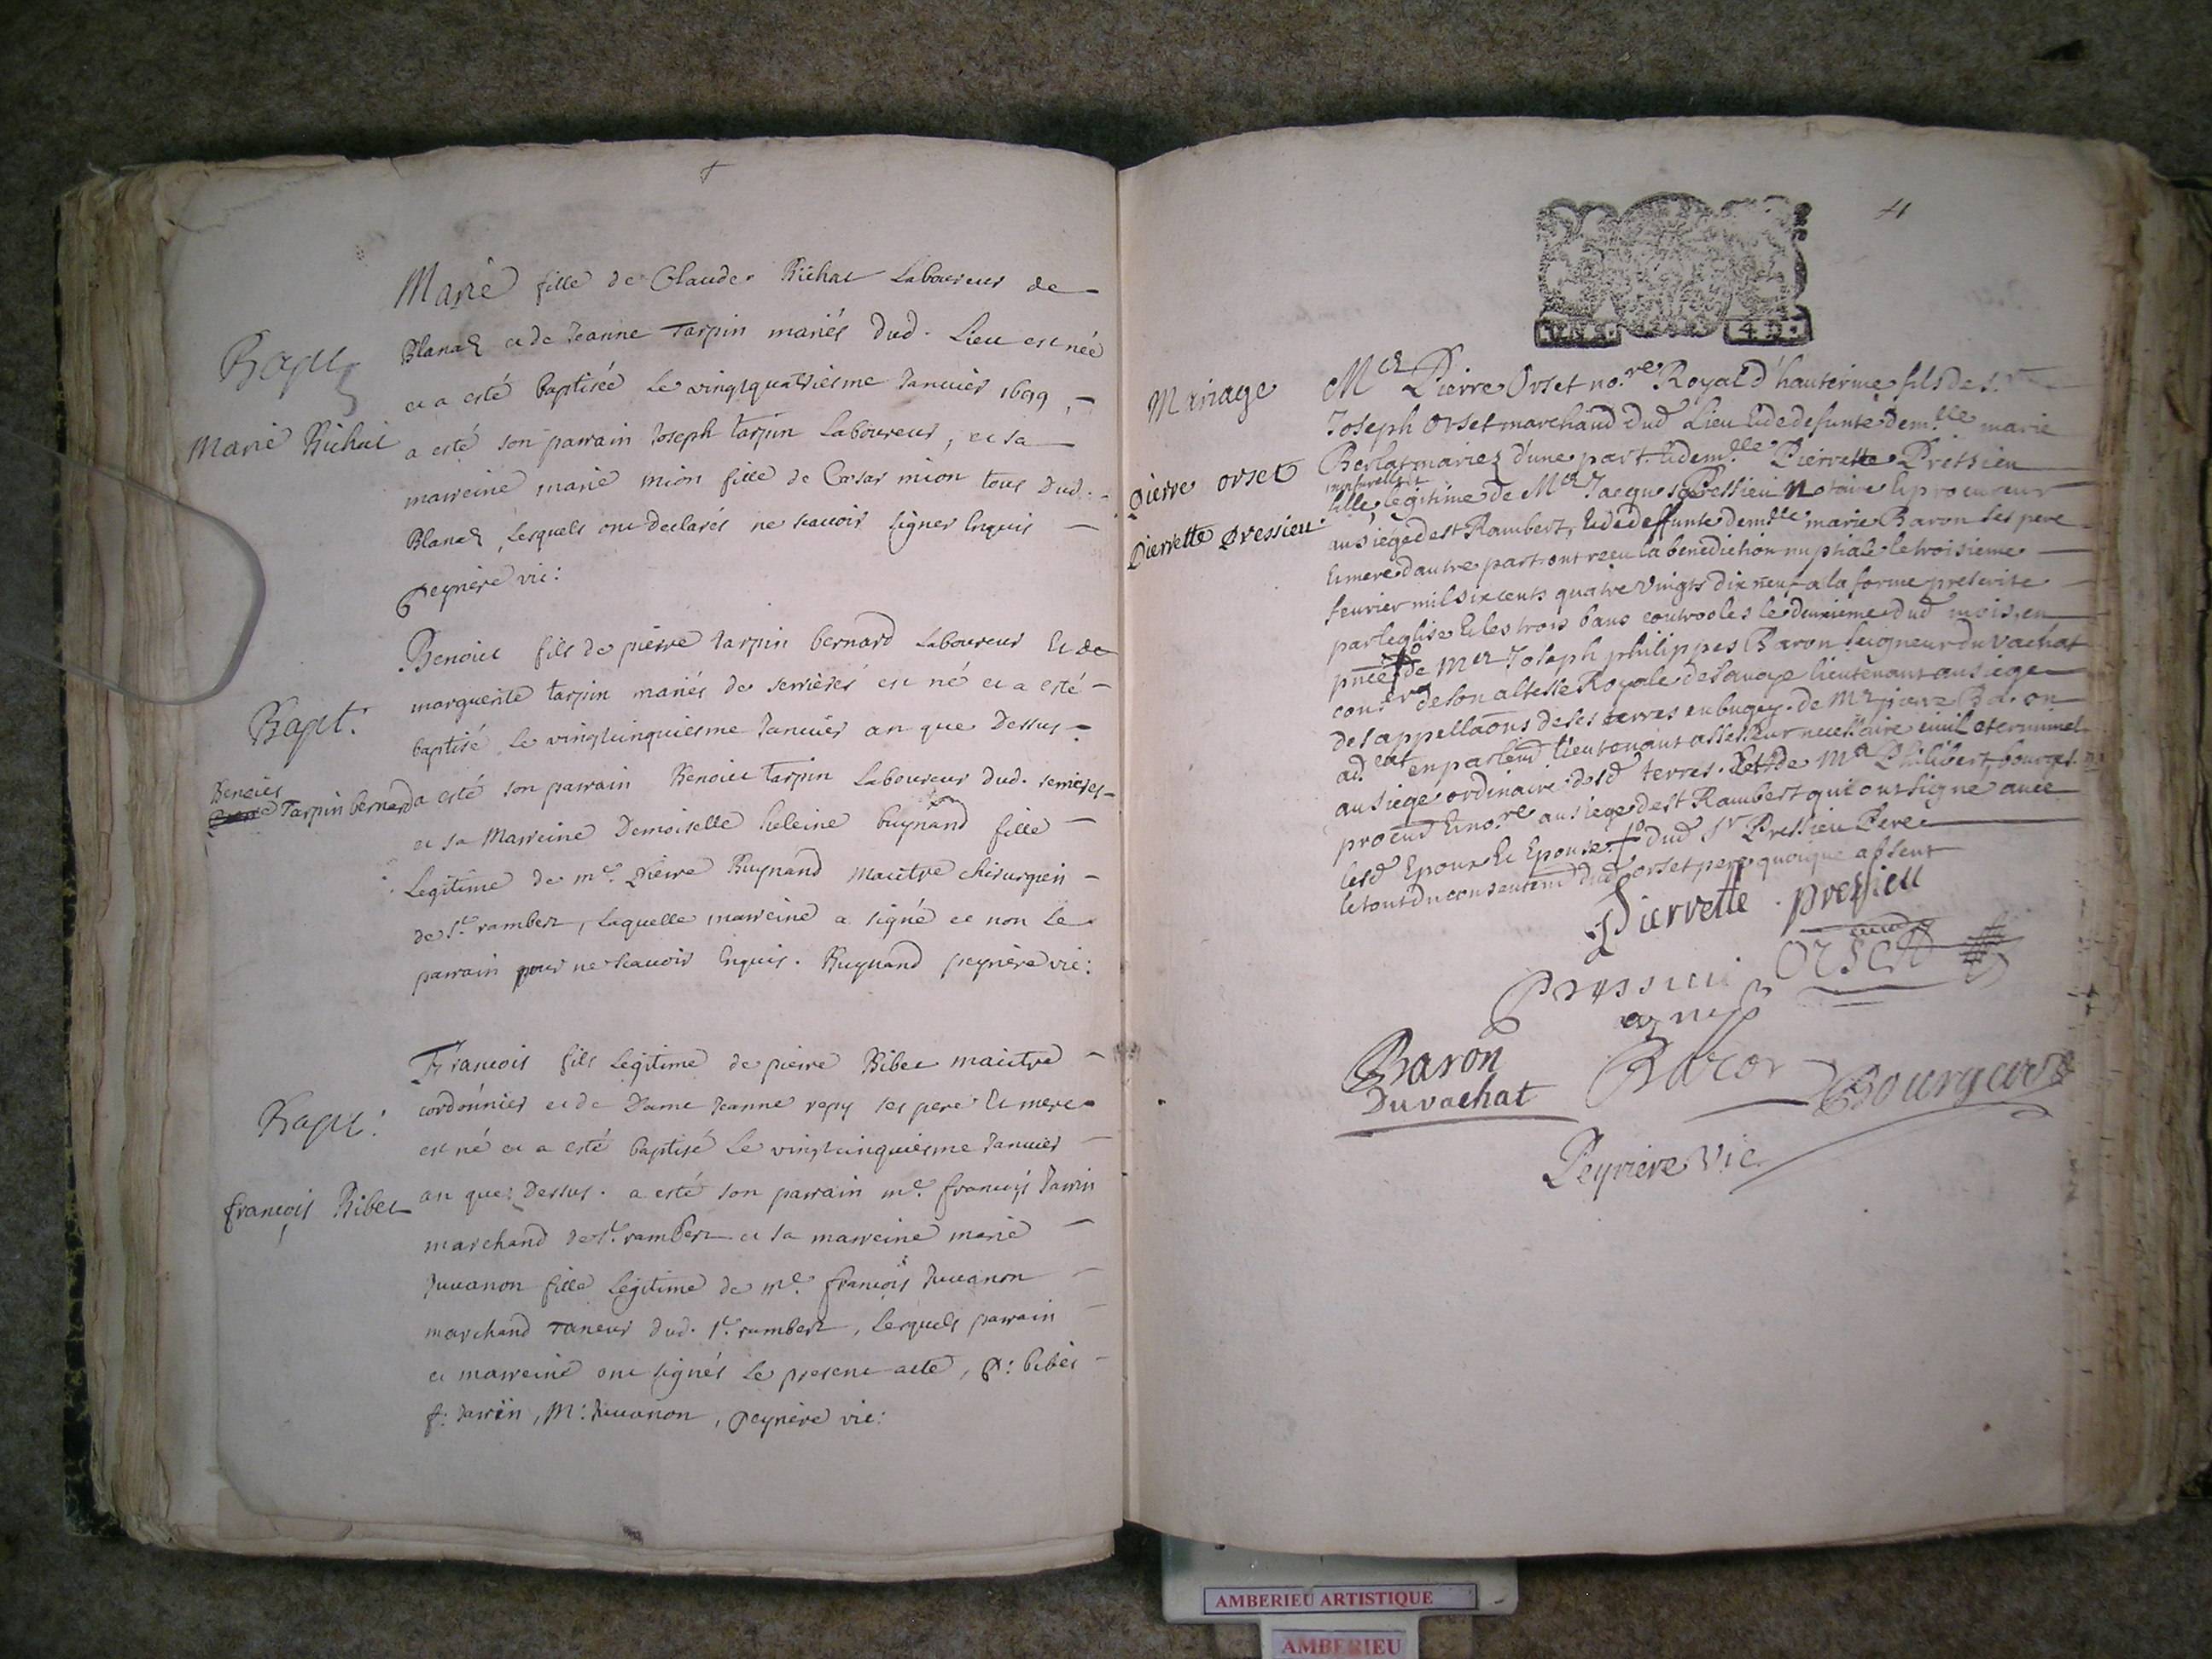 Bapt
Marie Richat
Marie fille de Claude Richat Laboureur de
Blanaz et de Jeanne Tarpin mariés dud. Lieu est née
et a esté baptisée le vingtquatriesme Janvier 1699,
a esté son parrain Joseph tarpin Laboureur, et sa
marreine marie mion fille de Cæsar mion tous dud.
Blanaz, Lesquels ont declarés ne scavoir signer Enquis
peyriere vic:
Bapt.
Benoict
Tarpin bernard
Benoict fils de pierre tarpin bernard Laboureur Et de
marguerite tarpin mariés de serrières est né et a esté
baptisé le vingtcinquiesme Janvier an que Dessus
a esté son parrain Benoict tarpin Laboureur dud. serrieres
et sa Marreine Demoiselle heleine buynand fille
Legitime de me. Pierre Buynand maictre chirurgien
de St. rambert, Laquelle marreine a signé et non Le
parrain pour ne scavoir Enquis. Buynand peyriere vic:
Bapt:
françois Ribet
François fils Legitime de pierre Ribet maictre
cordonnier et de Dame Jeanne repy ses pere Et mere
est né et a esté baptisé Le vingtcinquiesme Janvier
an que Dessus. a esté son parrain me. françois
marchand de St. rambert et sa marreine marie
Juvanon fille Legitime de me. françois Juvanon
marchand Taneur dud. St. rambert, Lesquels parrain
et marreine ont signés Le present acte, P:
M: Juvanon, peyriere vic:
Mariage
pierre orset
pierrette pressieu
Me Pierre Orset no.re Royal d'hauterive fils de s.r
Joseph Orset marchand dud Lieu Et de defunte dem.lle marie
mariez d'une part. Et dem.lle Pierrette Pressieu
naturelle et
fille legitime de Me Jacques Pressieu Notaire Et procureur
au siege de st Rambert, Et de deffunte demlle marie Baron ses pere
Et mere dautre part ont receu la benediction nuptiale le troisieme
fevrier mil six cents quatre vingts dix neuf a la forme prescrite
par leglise Et les trois bans controoles le deuxieme dud mois, en
pnce de Mer Joseph philippes Baron seigneur du vachat
con.er de son altesse Royale de savoye lieutenant au siege
des appellaons de ses terres en bugey. de Mr pierre
ad.cat en parlemt lieutenant assesseur necessaire civil et criminel
au siege ordinaire desd terres. Et de Me Philibert
procur Et no.re au siege de st Rambert qui ont signé avec
lesd Epoux Et Epouse. dud sr Pressieu Pere
le tout du consentemt dud orset pere quoique absent
Pierrette pressieu
Pressieu ORSET
Baron
Duvachat
Baron
Peyriere Vic
AMBERIEU ARTISTIQUE
AMBERIEU